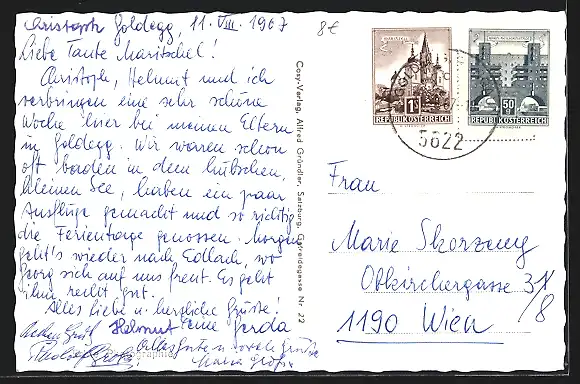 Christoph Goldegg, 11. VIII. 1967
8€
Liebe Tante Maritschel!
Christoph, Helmut und ich
verbringen eine sehr schöne
Woche hier bei meinen Eltern
in Goldegg. Wir waren schon
oft baden in dem hübschen,
kleinen See, haben ein paar
Ausflüge gemacht und so richtig
die Ferientage genossen. Morgen
geht's wieder nach Edlach, wo
Georg sich auf uns freut. Es geht
ihm recht gut.
Alles liebe u. herzliche Grüsse!
Helmut Deine Gerda
Alles Gute u. viele Grüße
Maria
Cosy-Verlag, Alfred Gründler, Salzburg, Getreidegasse Nr. 22
MARIAZELL
1S
REPUBLIK ÖSTERREICH
50 g
REPUBLIK ÖSTERREICH
5622
Frau
Marie Skorzeny
Ottkirchergasse 31
/8
1190 Wien